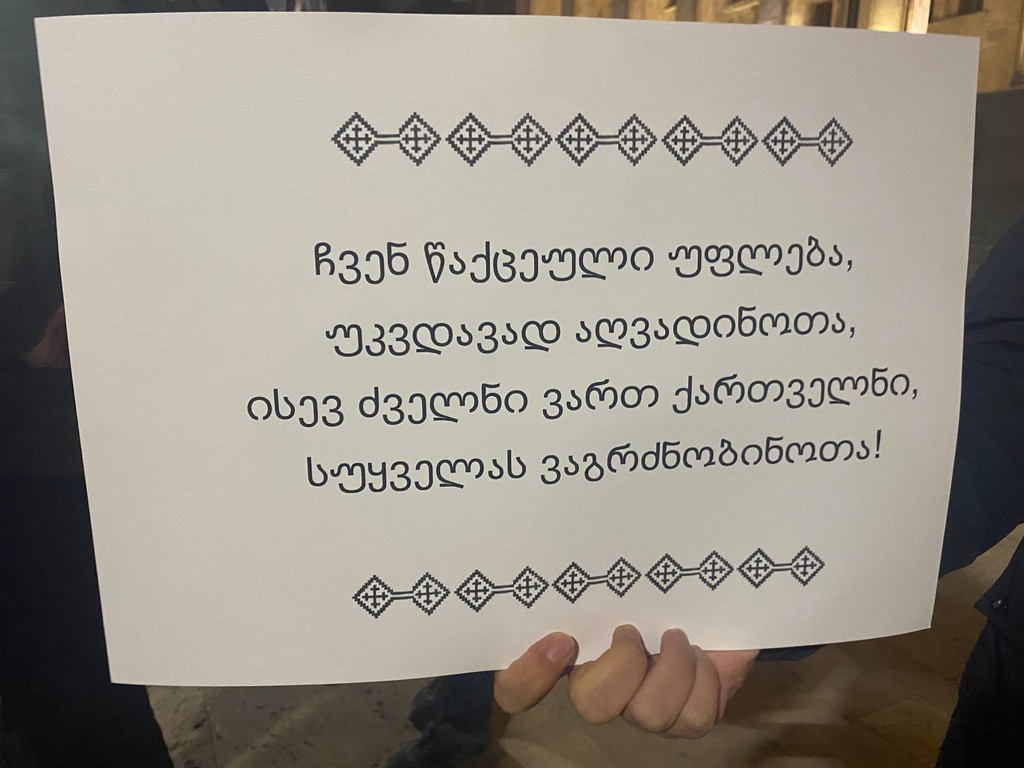 ჩვენ წაქცეული უფლება,
უკვდავად აღვადინოთა,
ისევ ძველნი ვართ ქართველნი,
სუყველას ვაგრძნობინოთა!